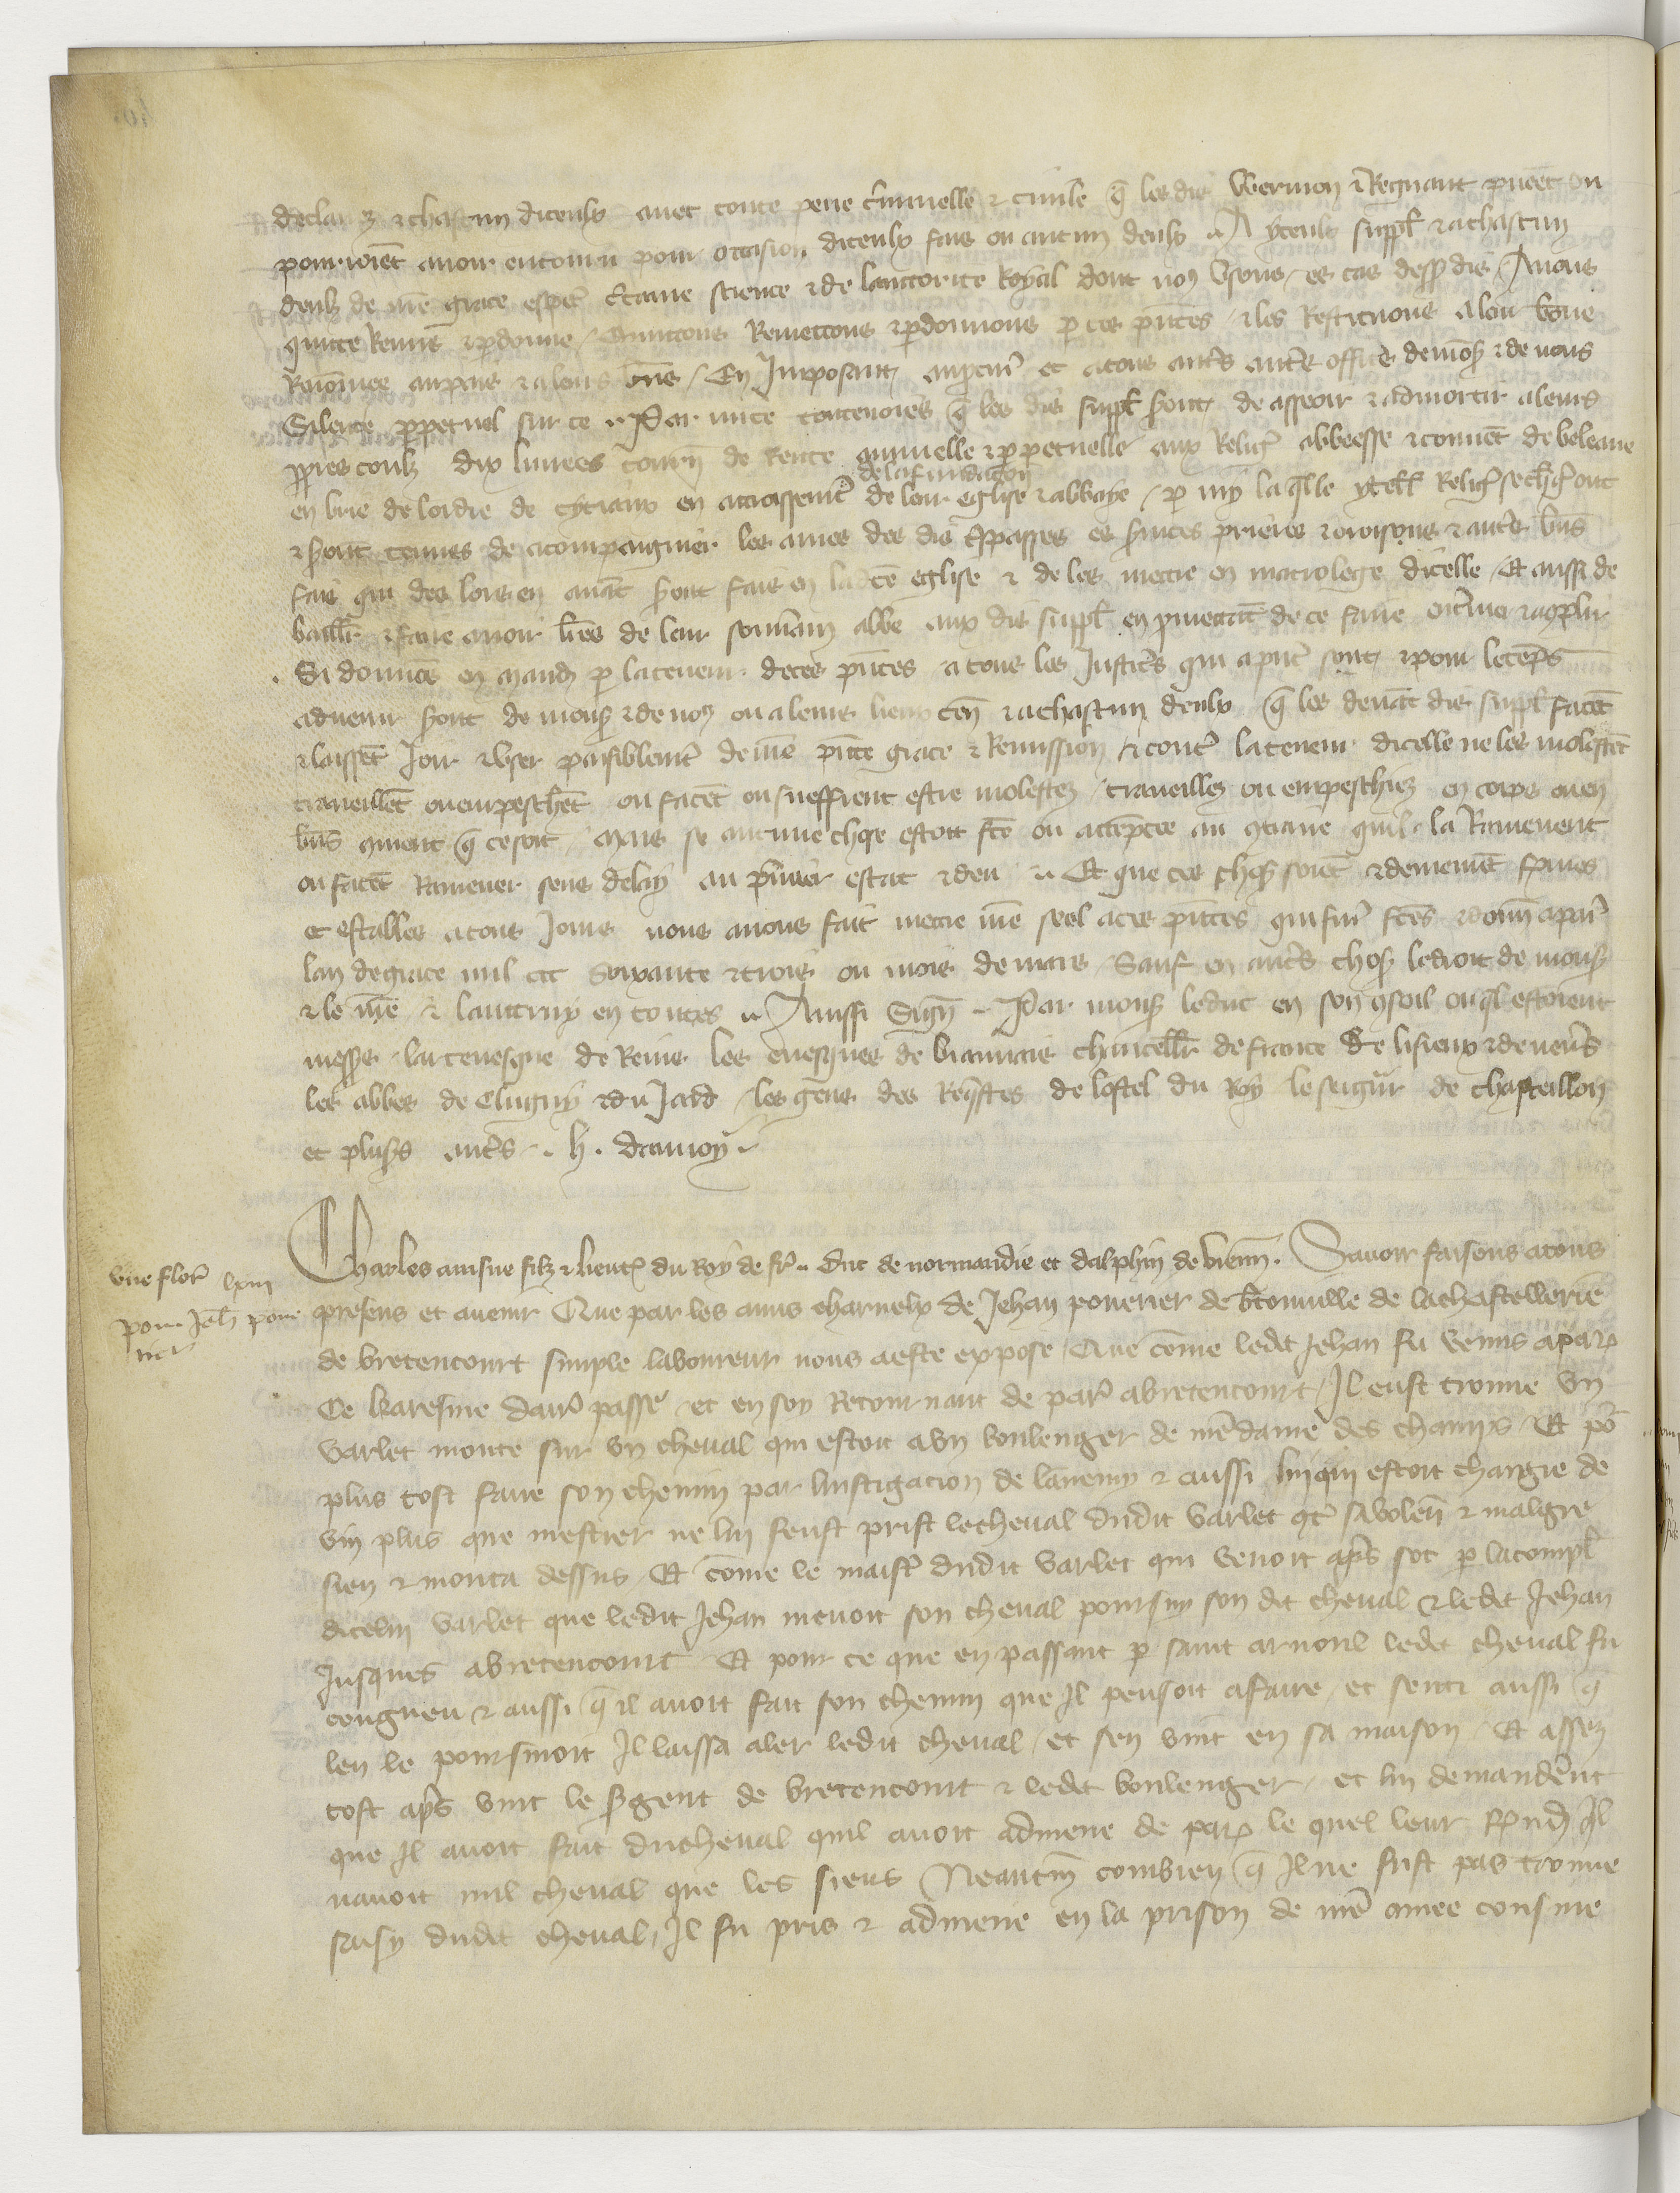 declairez & chascun diceulx avec toute peine c̃iminelle & civile q̃ les dis Wermon & Regnaut pueẽt ou
pourroiẽt avoir encouru pour occasion diceulx fais ou aucun deulx .. A yceulx suppl̃ & a chascun
deulx de nr̃e grace esp̃el c̃taine science & de lauctorite Royal dont nous usons es cas dessus dis Avons
quitte Remis & p̱donne / Quittons Remettons & p̱donnons p̱ ces p̃ntes / & les Restituons a leur bõne
Renõmee au pais & a leurs biẽs / En Imposant au p̱cur̃ et a tous aut̃s aut̃s officiẽs de mons̃ & de nous
Silence p̱petuel sur ce .. Par mi ce toutevoies q̃ les dis suppl̃ s̃ont de asseoir & admortir a leurs
pp̃res coulz dix livrees tourñ de Rente annuelle & p̱petuelle aux Relig̃ abbeesse & convẽt de beleaue
de la fundacion
en brie de lordre de cyteaux en accroissem̃t de leur eglise & abbaye / p̱ my laq̃lle ycell̃ Relig̃ seront
& s̃ont tenues de acompaignier les ames des dis t̃spassez es s̃vices prieres & oroisons & aut̃s biẽs
fais qui des lors en avãt s̃ont fais en lad̃ce eglise & de les mectre en matrologe dicelle / Et aussi de
baill̃r & faire avoir lr̃es de leur souv̱ain abbe aux dis suppl̃ en p̱mectãt de ce faire ent̃iner & acõplir
Si donnõs en mandem̃ p̱ la teneur de ces p̃ntes a tous les Justic̃s qui a p̃nt sont & pour le tẽps
advenir s̃ont de mons̃ & de nous ou a leurs lieux teñ & a chascun deulx q̃ les devãt dis suppl̃ facẽt
& laissẽt Joir & user paisiblem̃t de nr̃e p̃nte grace & Remission / & cont̃ la teneur dicelle ne les molestẽt
travaillẽt ou empeschẽt ou facẽt ou sueffrent estre molestez / travaillez ou empeschiez en corps ou en
biẽs cõment q̃ ce soit / Mais se aucune chose estoit fc̃e ou attẽptee au cõtraire quil la Ramenent
ou facẽt Ramener sens delay au p̃mier estat & deu .. Et que ces choses soiẽt & demeurẽt fermes
et estables a tous Jours nous avons fait mectre nr̃e seel a ces p̃ntes qui fur̃ fc̃es & donñ a par̃
lan de grace mil ccc Soixante & trois ou mois de mars / Sauf en aut̃s choses le droit de mons̃
& le nr̃e & lautruy en toutes .. Ainsi Sign̄ .. Par mons̃ le duc en son cõsoil ouq̃l estoient
mess̃rs larcevesque de Reins les evesques de biauvais chancell̃r de france de lisieux & de nevers
les abbes de Clugny & du Jard / les gens des Req̃stes de lostel du Roy le seign̄r de chasteillon
et plus̃s aut̃s .. h . damoy ..
Une flor̃ lxiii
pour Jeh̃ pove
rier
Charles ainsne filz & lieuten̄ du Roy de fr̃ .. Duc de normandie et dalphin de vienñ . Savoir faisons a tous
presens et avenir Que par les amis charnelx de Jehan poverier de b̃tonville de la chastellerie
de bretencourt simple laboureur nous a este expose / Que cõme ledit Jehan fu venus a par̃
Ce karesme darr̃ passe et en soy Retournant de par̃ a bretencourt / Il eust trouve un
varlet monte sur un cheval qui estoit a un boulenger de nr̃e dame des champs / Et põ
plus tost faire son chemin par linstigacion de lanemy & aussi lui qui estoit chargie de
vin plus que mestier ne lui feust prist le cheval dudit varlet cõt̃ sa volen̄ & malgre
sien & monta dessus / Et cõme le maist̃ dudit varlet qui venoit ap̃s sot p̱ la compl̃
dicelui varlet que ledit Jehan menoit son cheval poursuy son dit cheval & ledit Jehan
Jusques a bretencourt Et pour ce que en passant p̱ saint arnoul ledit cheval fu
congneu & aussi q̃ il avoit fait son chemin que Il pensoit a faire / et senti aussi q̃
len le poursuioit Il laissa aler ledit cheval / et sen vint en sa maison / Et assez
tost ap̃s vint le s̃gent de bretencourt & ledit boulenger / et lui demandẽrent
que Il avoit fait du cheval quil avoit admene de par̃ le quel leur Respond̃ q̃l
navoit nul cheval que les siens Neantm̃ combien q̃ Il ne fust pas trouve
saisy dudit cheval / Il fu pris & admene en la prison de nr̃e amee cousine